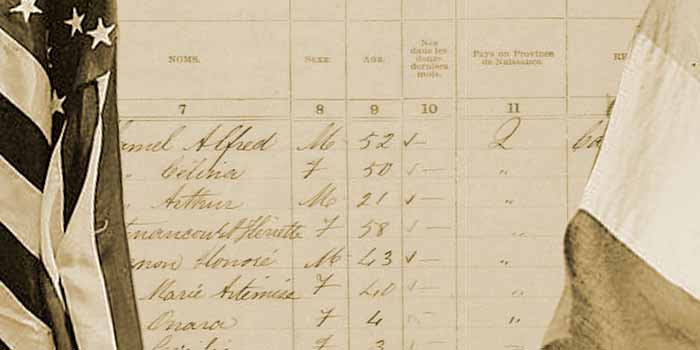 NOMS. SEXE. AGE. Nés dans les douze derniers mois. Pays ou Province de Naissance. RE
7 8 9 10 11
Alfred M 52 – Q
" Célina F 50 – "
" Arthur M 21 – "
F 58 – "
Honoré M 43 – "
Marie Artémise F 40 – "
Onara F 4 – "
F 3